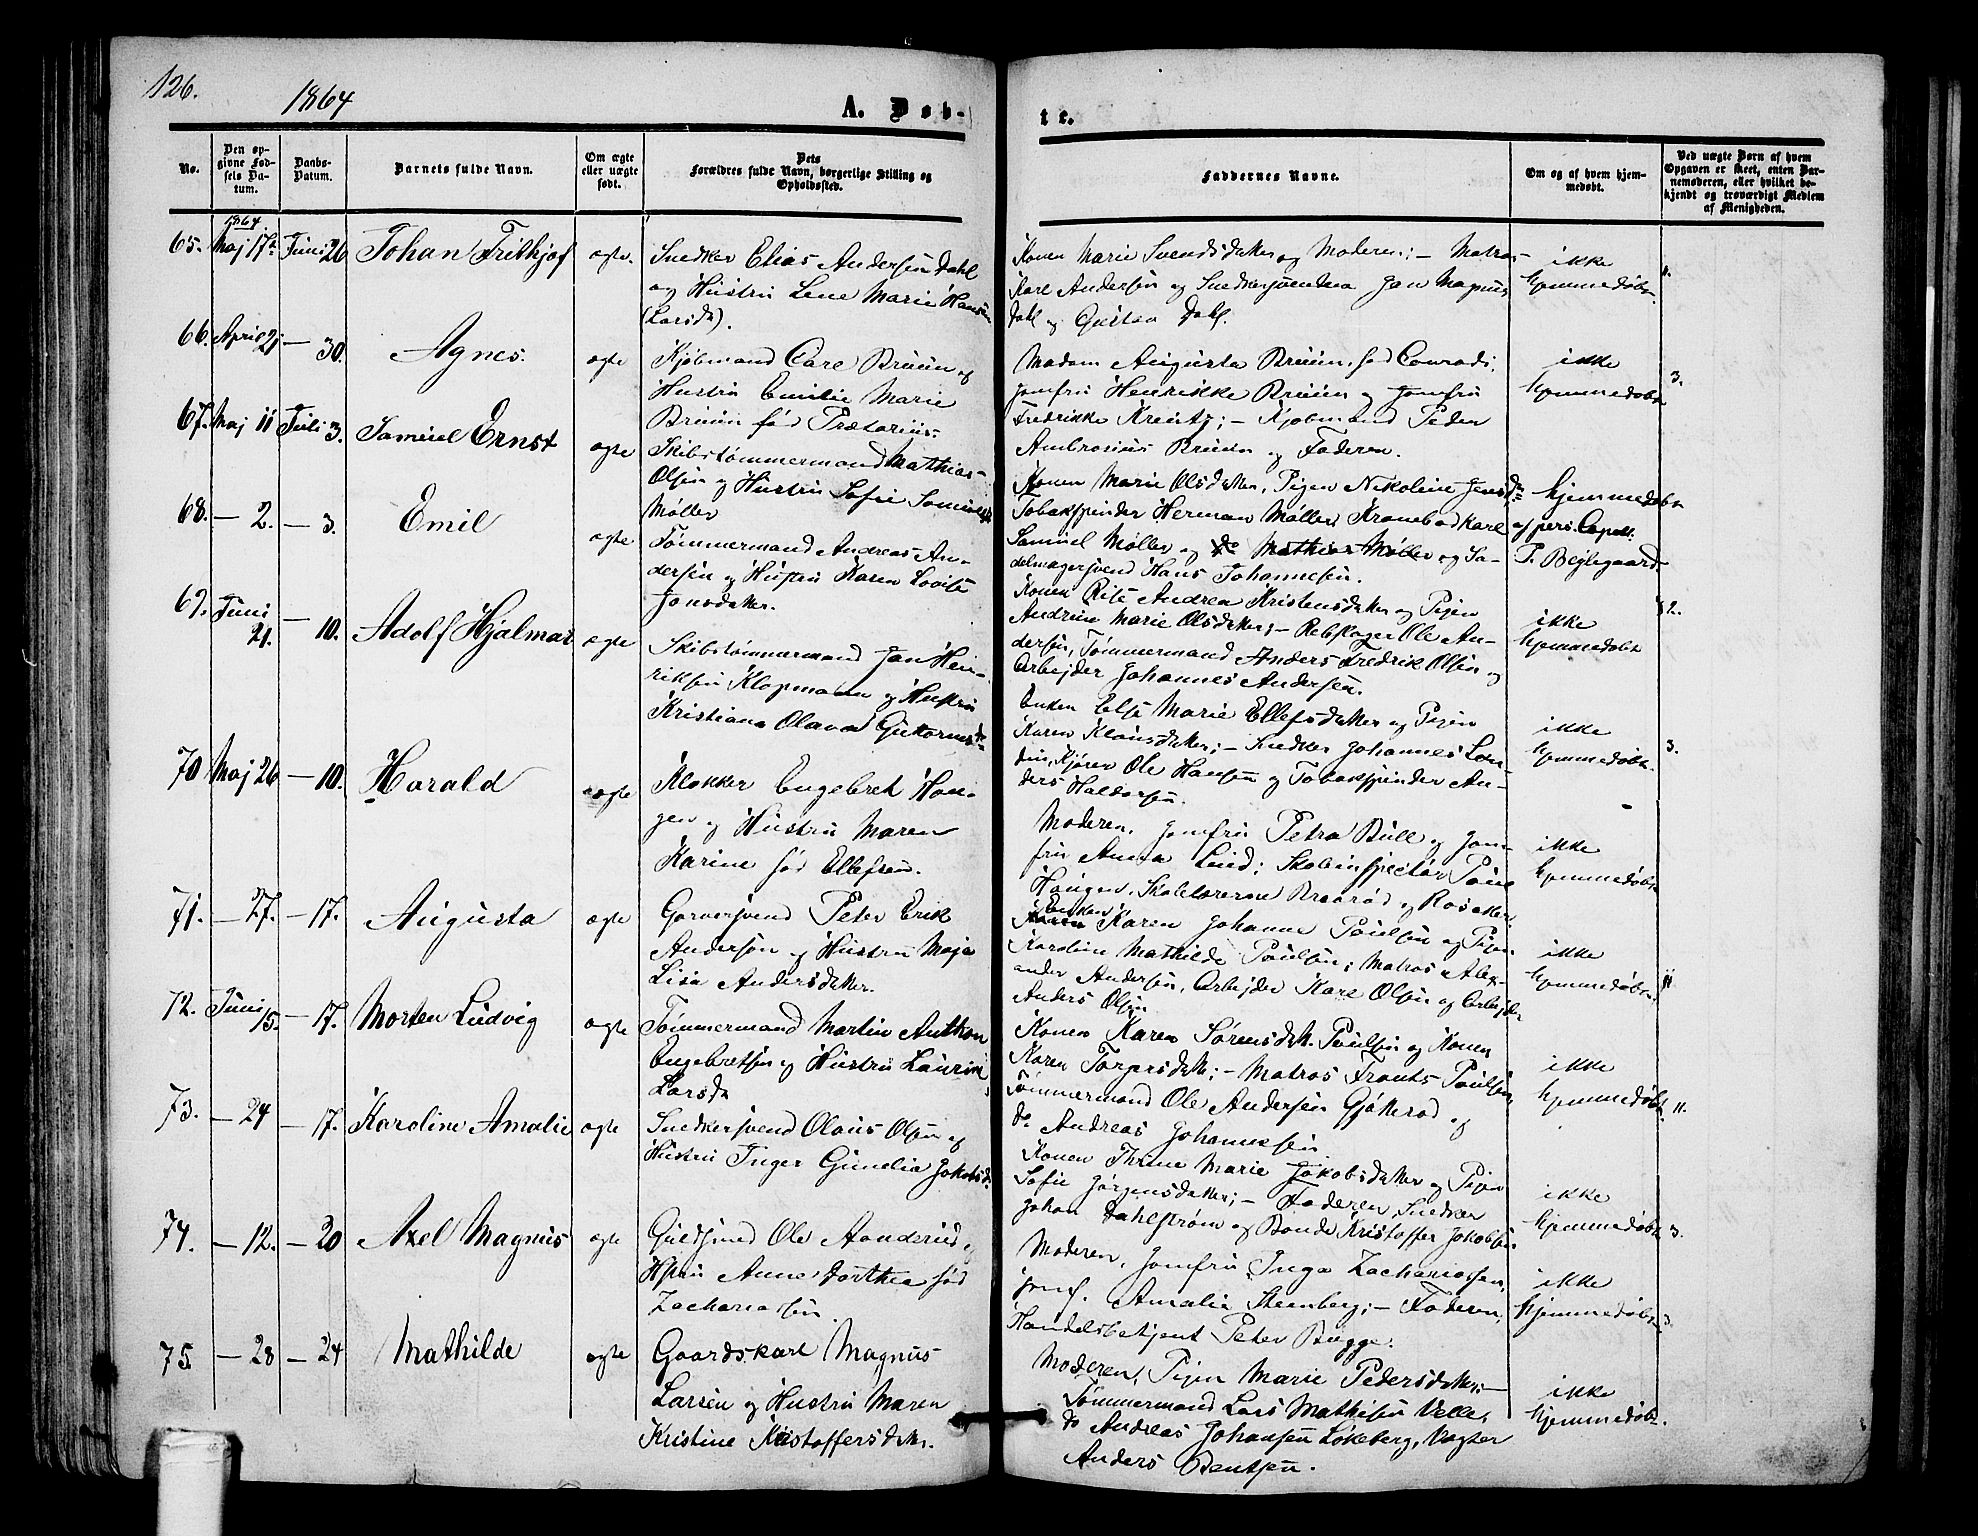 126.
1864
A. Døb-
te.
No.
Den op-
givne Fød-
sels Da-
tum.
Daabs-
Datum.
Barnets fulde Navn.
Om ægte
eller uægte
født.
Dets
Forældres fulde Navn, borgerlige Stilling og
Opholdssted.
Faddernes Navne.
Om og af hvem hjem-
medøbt.
Ved uægte Børn af hvem
Opgaven er skeet, enten Bar-
nemoderen, eller hvilket be-
kjendt og troværdigt Medlem
af Menigheden.
1864
65. Maj 17de Juni 26 Johan Frithjof ægte.
Snedker Elias Andersen Dahl
og Hustru Lene Marie Hansen
(Larsdr).
Konen Marie Svendsdatter og Moderen; — Matros
Karl Andersen og Snedkersvendene Jan Magnus
Dahl og Gustav Dahl.
ikke
hjemmedøbt.
66. April 21 — 30. Agnes. ægte
Kjøbmand Carl Bruun og
Hustru Emilie Marie
Bruun fød Prætorius.
Madam Augusta Bruun, fød Conradi;
Jomfru Henrikke Bruun og Jomfru
Fredrikke Kreutz; — Kjøbmand Peder
Ambrosius Bruun og Faderen.
ikke
hjemmedøbt
3.
67. Maj 11 Juli 3. Samuel Ernst ægte
Skibstømmermand Mathias
Olsen og Hustru Sofie Samuelsdr
Møller
Konen Marie Olsdatter, Pigen Nikoline Jensdr
Tobakspinder Herman Møller, Kranebadkarl
Samuel Møller og do Mathias Møller og Sa-
delmagersvend Hans Johannesen.
hjemmedøbt
af pers. Capell.
P. Bejlegaard.
68. — 2. — 3. Emil ægte
Tømmermand Andreas An-
dersen og Hustru Karen Lovise
Jonsdatter.
Konen Elise Andrea Kristensdatter og Pigen
Andrine Marie Olsdatter; — Rebslager Ole An-
dersen, Tømmermand Anders Fredrik Olsen og
Arbejder Johannes Andersen.
ikke
hjemmedøbt
2.
69. Juni 21. — 10. Adolf Hjalmar ægte
Skibstømmermand Jan Hen-
riksen Klopmann og Hustru
Kristiane Olava Guttormsdr
Enken Else Marie Ellefsdatter og Pigen
Karen Klausdatter; — Snedker Johannes Lun-
din, Kjører Ole Hansen og Tobakspinder An-
ders Haldorsen.
ikke
hjemmedøbt.
3.
70 Maj 26 — 10. Harald ægte
Klokker Engebret Hau-
gen og Hustru Maren
Karine fød Ellefsen.
Moderen, Jomfru Petra Bull og Jom-
fru Anna Lund; Skoleinspectør Poul
Haugen, Skolelærerne Braarød og Rosæther.
ikke
hjemmedøbt
71. — 27. — 17. Augusta ægte
Garversvend Peter Erik
Andersen og Hustru Maja
Lisa Andersdatter.
Enken Karen Johanne Poulsen og Pigen
Karoline Mathilde Poulsen; Matros Alex-
ander Andersen, Arbejder Karl Olsen og Arbejder
Anders Olsen
ikke
hjemmedøbt.
72. Juni 15. — 17. Morten Ludvig ægte
Tømmermand Martin Anthon
Engebretsen og Hustru Laurine
Larsdr
Konen Karen Sørensdatr. Poulsen og Konen
Karen Torgersdatr; — Matros Frants Poulsen,
Tømmermand Ole Andersen Gjøkerød og
do Andreas Johannessen
ikke
hjemmedøbt.
11.
73. — 24 — 17. Karoline Amalie ægte
Snedkersvend Olaus Olsen og
Hustru Inger Gunelia Jakobsdr.
Konen Thrine Marie Jakobsdatter og Pigen
Sofie Jørgensdatter; — Faderen, Snedker
Johan Dahlstrøm og Bonde Kristoffer Jakobsen
ikke
hjemmedøbt
3.
74. — 12. — 20 Axel Magnus ægte
Guldsmed Ole Aanderud og
Hstru Anne Dorthea fød
Zachariassen.
Moderen, Jomfru Inga Zachariassen,
Jomf. Amalie Steenberg; — Faderen,
Handelsbetjent Peter Bugge.
ikke
hjemmedøbt
75. — 28 — 24 Mathilde ægte
Gaardskarl Magnus
Larsen og Hustru Maren
Kristine Kristoffersdatr.
Moderen, Pigen Marie Pedersdatter; —
Tømmermand Lars Mathisen Velle,
do Andreas Johansen Løkeberg, Vægter
Anders Bentsen.
ikke
hjemmedøbt.